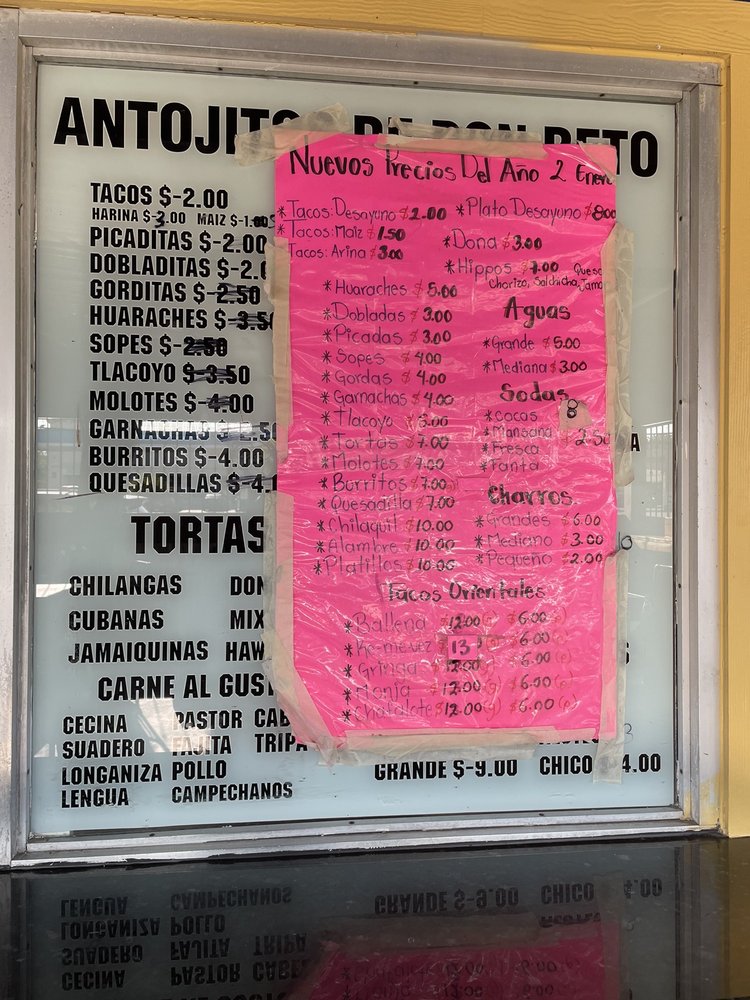 ANTOJITO DE DON BETO
TACOS $-2.00
HARINA $-3.00 MAIZ $-1.
PICADITAS $-2.00
DOBLADITAS $-2.
GORDITAS $-2.50
HUARACHES $-3.50
SOPES $-2.50
TLACOYO $-3.50
MOLOTES $-4.00
GARNACHAS $-2.50
BURRITOS $-4.00
QUESADILLAS $-4.
TORTAS
CHILANGAS DON
CUBANAS MIX
JAMAIQUINAS HAW
CARNE AL GUS
CECINA PASTOR CAB
SUADERO FAJITA TRIPA
LONGANIZA POLLO
LENGUA CAMPECHANOS
GRANDE $-9.00 CHICO 4.00
Nuevos Precios Del Año 2 Enero
*Tacos: Desayuno $2.00
*Tacos: Maiz $1.50
Tacos: Arina $3.00
*Huaraches $5.00
*Dobladas $3.00
*Picadas $3.00
*Sopes $4.00
*Gordas $4.00
*Garnachas $4.00
*Tlacoyo $5.00
*Tortas $7.00
*Molotes $7.00
*Burritos $7.00
*Quesadilla $7.00
*Chilaquil $10.00
*Alambre $10.00
*Platillos $10.00
*Plato Desayuno $8.00
*Dona $3.00
*Hippos $7.00 Queso
Chorizo, Salchicha, Jamo
Aguas
*Grande $5.00
*Mediana $3.00
Sodas
*Cocas
*Mansana $2.50
*Fresca
*Fanta
8
Charros
*Grandes $6.00
*Mediano $3.00
*Pequeño $2.00
Tacos Orientales
*Ballena $12.00(g) $6.00(p)
*Ke-me vez 13 $6.00(p)
*Gringa $12.00(g) $6.00(p)
*Monja $12.00(g) $6.00(p)
*Chafalote $12.00(g) $6.00(p)